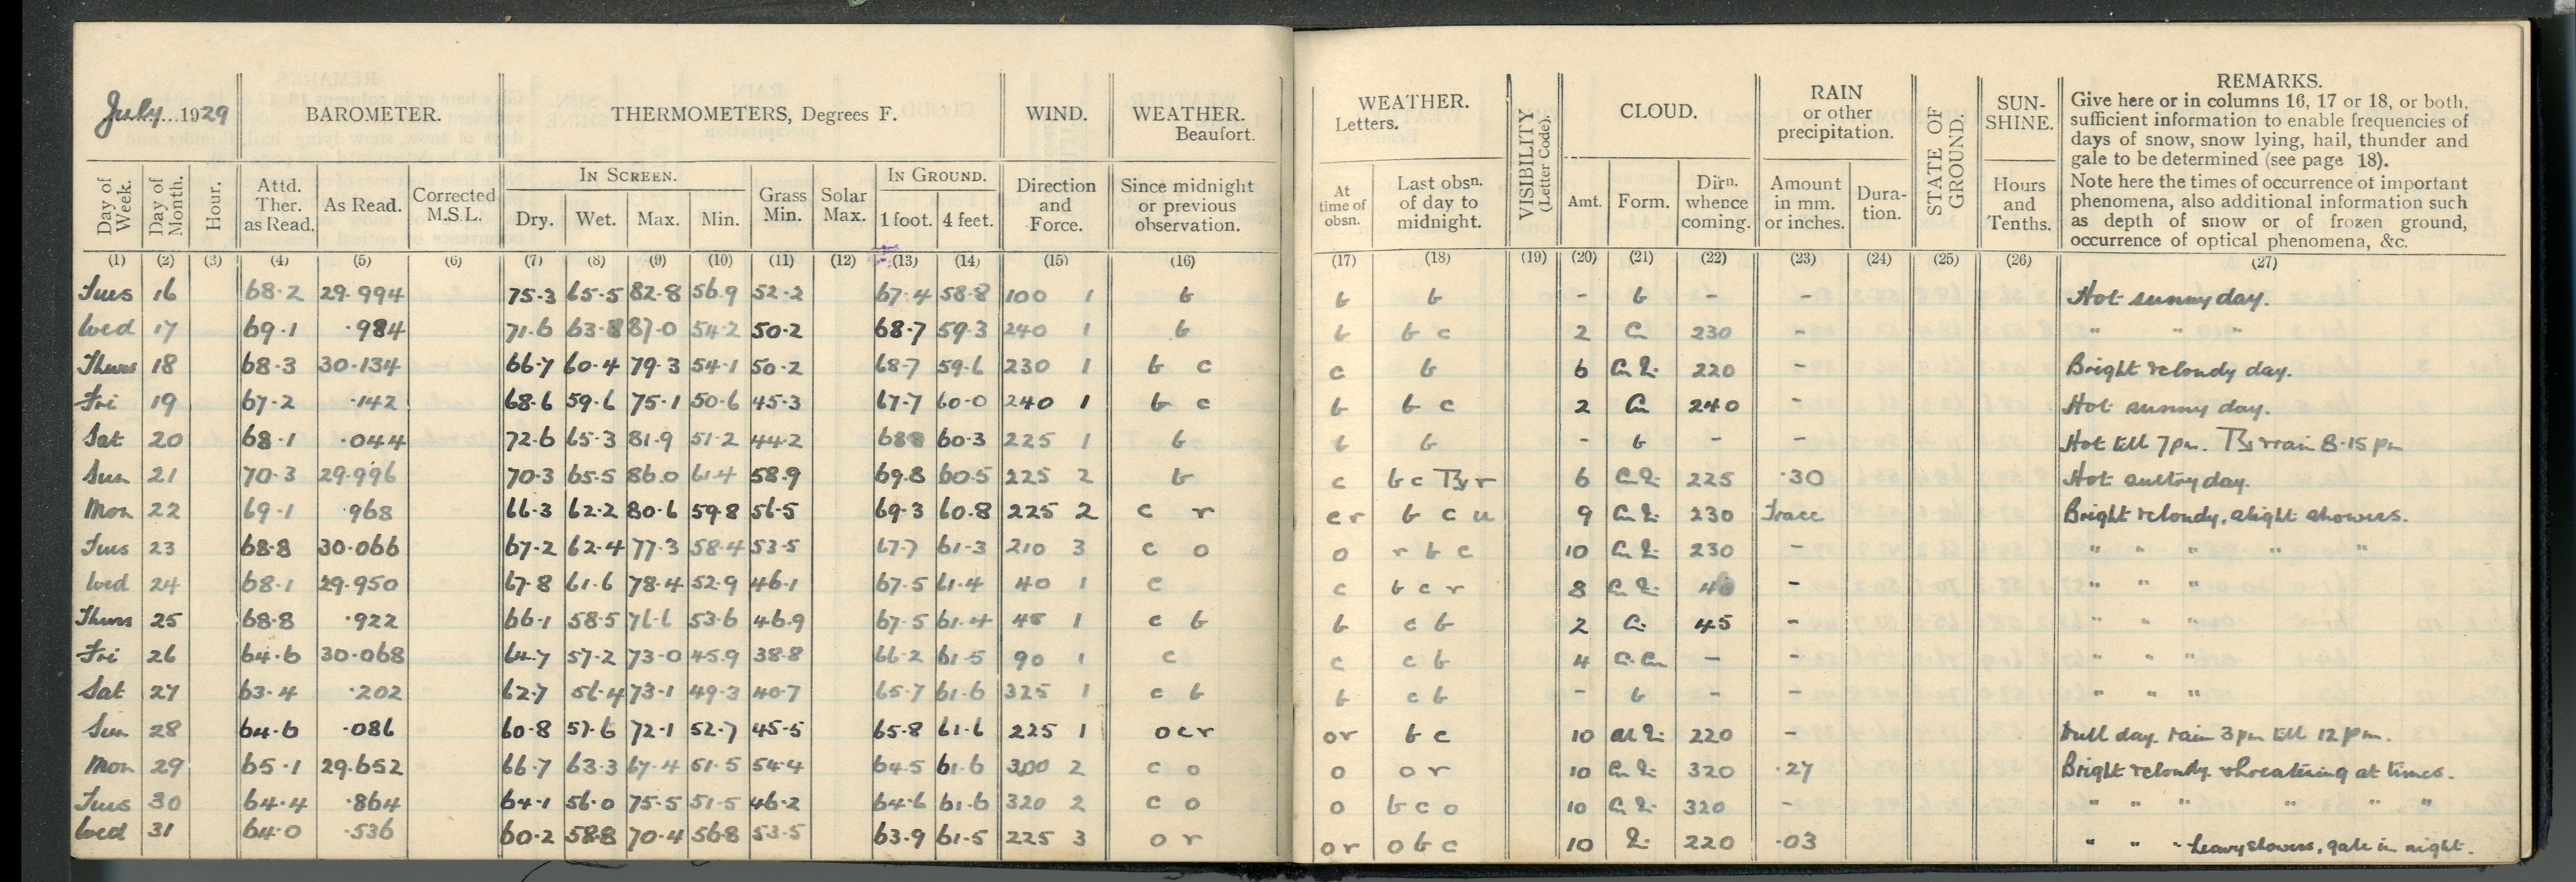 July 1929
BAROMETER.
THERMOMETERS, Degrees F.
WIND.
WEATHER.
Beaufort.
Day of Week.
Day of Month.
Hour.
Attd. Ther. as Read.
As Read.
Corrected M.S.L.
IN SCREEN.
Dry. Wet. Max. Min.
Grass Min.
Solar Max.
IN GROUND.
1 foot. 4 feet.
Direction and Force.
Since midnight or previous observation.
WEATHER.
Letters.
At time of obsn.
Last obsn. of day to midnight.
VISIBILITY (Letter Code).
CLOUD.
Amt. Form. Dirn. whence coming.
RAIN or other precipitation.
Amount in mm. or inches.
Duration.
STATE OF GROUND.
SUN-SHINE.
Hours and Tenths.
REMARKS.
Give here or in columns 16, 17 or 18, or both,
sufficient information to enable frequencies of
days of snow, snow lying, hail, thunder and
gale to be determined (see page 18).
Note here the times of occurrence of important
phenomena, also additional information such
as depth of snow or of frozen ground,
occurrence of optical phenomena, &c.
(1) (2) (3) (4) (5) (6) (7) (8) (9) (10) (11) (12) (13) (14) (15) (16) (17) (18) (19) (20) (21) (22) (23) (24) (25) (26) (27)
Tues 16 68.2 29.994 75.3 65.5 82.8 56.9 52.2 67.4 58.8 100 1 b b b - b - - Hot sunny day.
Wed 17 69.1 .984 71.6 63.8 87.0 54.2 50.2 68.7 59.3 240 1 b b b c 2 Cu 230 - " " "
Thurs 18 68.3 30.134 66.7 60.4 79.3 54.1 50.2 68.7 59.6 230 1 b c c b 6 220 - Bright & cloudy day.
Fri 19 67.2 .142 68.6 59.6 75.1 50.6 45.3 67.7 60.0 240 1 b c b b c 2 Cu 240 - Hot sunny day.
Sat 20 68.1 .044 72.6 65.3 81.9 51.2 44.2 60.3 225 1 b b b - b - - Hot till 7pm. rain 8.15 pm
Sun 21 70.3 29.996 70.3 65.5 86.0 61.4 58.9 69.8 60.5 225 2 b c b c r 6 225 .30 Hot sultry day.
Mon 22 69.1 .968 66.3 62.2 80.6 59.8 56.5 69.3 60.8 225 2 c r c r b c u 9 230 Trace Bright & cloudy, slight showers.
Tues 23 68.8 30.066 67.2 62.4 77.3 58.4 53.5 67.7 61.3 210 3 c o o r b c 10 230 - " " " " "
Wed 24 68.1 29.950 67.8 61.6 78.4 52.9 46.1 67.5 61.4 40 1 c c b c r 8 - " " "
Thurs 25 68.8 .922 66.1 58.5 76.6 53.6 46.9 67.5 61.4 45 1 c b b c b 2 45 - " " "
Fri 26 64.6 30.068 64.7 57.2 73.0 45.9 38.8 66.2 61.5 90 1 c c c b 4 - - " " "
Sat 27 63.4 .202 62.7 56.4 73.1 49.3 40.7 65.7 61.6 325 1 c b b c b - b - - " " "
Sun 28 64.6 .086 60.8 57.6 72.1 52.7 45.5 65.8 61.6 225 1 o c r o r b c 10 220 - Dull day. rain 3pm till 12 pm.
Mon 29 65.1 29.652 66.7 63.3 67.4 51.5 54.4 64.5 61.6 300 2 c o o o r 10 320 .27 Bright & cloudy threatening at times.
Tues 30 64.4 .864 64.1 56.0 75.5 51.5 46.2 64.6 61.6 320 2 c o o b c o 10 320 - " " " " " "
Wed 31 64.0 .536 60.2 58.8 70.4 56.8 53.5 63.9 61.5 225 3 o r o r o b c 10 220 .03 " " " heavy showers, gale in night.